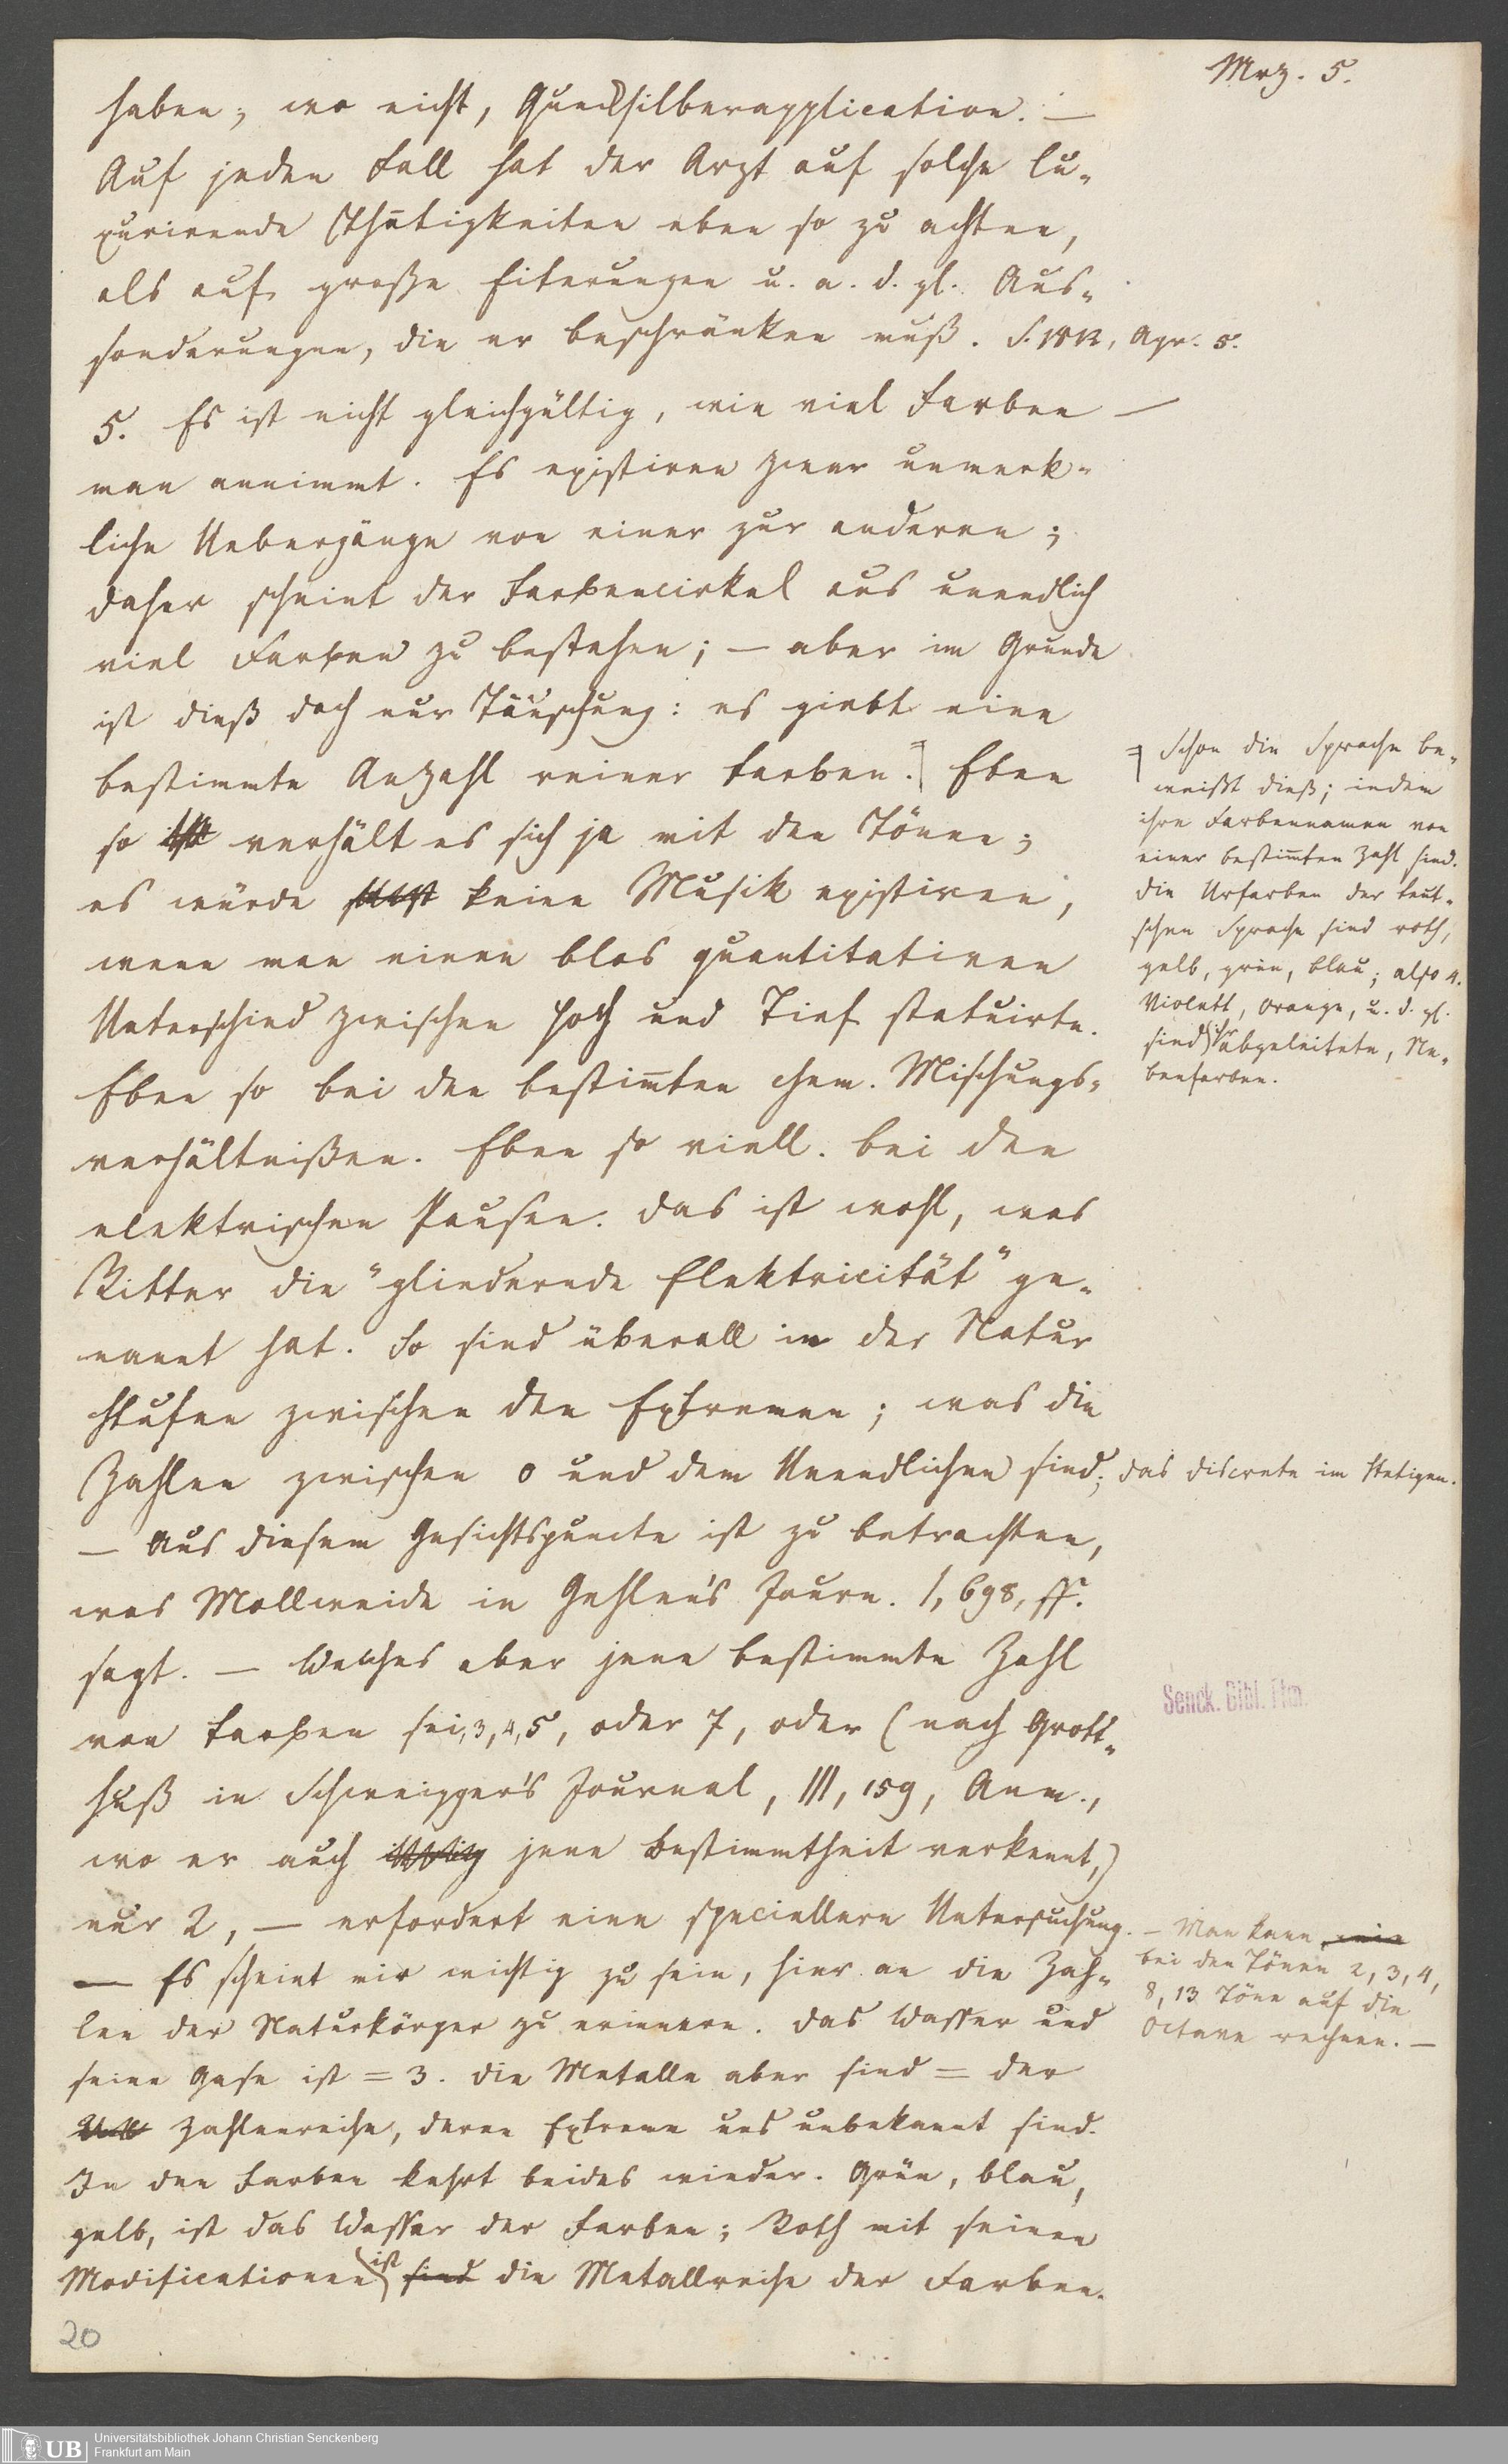 Mrz. 5.
haben; wo nicht, Quecksilberapplication. —
Auf jeden Fall hat der Arzt auf solche lu-
xurirende Thätigkeiten eben so zu achten,
als auf große Eiterungen u. a. d. gl. Aus-
sonderungen, die er beschränken muß. S. 1812, Apr. 5.
5. Es ist nicht gleichgültig, wie viel Farben —
man annimmt. Es existiren zwar unmerk-
liche Uebergänge von einer zur anderen;
daher scheint der Farbencirkel aus unendlich
viel Farben zu bestehen; — aber im Grunde
ist dieß doch nur Täuschung: es giebt eine
bestimmte Anzahl reiner Farben. Eben
so verhält es sich ja mit den Tönen;
es würde keine Musik existiren,
wenn man einen blos quantitativen
Unterschied zwischen Hoch und Tief statuirte.
Eben so bei den bestim̅ten chem. Mischungs-
verhältnißen. Eben so viell. bei den
elektrischen Pausen. Das ist wohl, was
Ritter die "gliedernde Elektricität" ge-
nannt hat. So sind überall in der Natur
Stufen zwischen den Extremen; was die
Zahlen zwischen 0 und dem Unendlichen sind; das Discrete im Stetigen.
— Aus diesem Gesichtspuncte ist zu betrachten,
was Mollweide in Gehlen's Journ. 1, 698, ff.
sagt. — Welches aber jene bestimmte Zahl
von Farben sei, 3, 4, 5, oder 7, oder (nach Grott-
huß in Schweigger's Journal, III, 159, Anm.,
wo er auch jene Bestimmtheit verkennt,)
nur 2, — erfordert eine speciellere Untersuchung.
— Es scheint mir wichtig zu sein, hier an die Zah-
len der Naturkörper zu erinnern. Das Wasser und
seine Gase ist = 3. Die Metalle aber sind = der
Zahlenreihe, deren Extreme uns unbekannt sind.
In den Farben kehrt beides wieder. Grün, blau,
gelb, ist das Wasser der Farben; Roth mit seinen
Modificationen ist sind die Metallreihe der Farben.
Schon die Sprache be-
weißt dieß; indem
ihre Farbennamen von
einer bestim̅ten Zahl sind.
Die Urfarben der teut-
schen Sprache sind roth,
gelb, grün, blau; also 4.
Violett, Orange, u. d. gl.
sind ihr abgeleitete, Ne-
benfarben.
— Man kann
bei den Tönen 2, 3, 4,
8, 13 Töne auf die
Octave rechnen. —
Senck. Bibl. Ffm.
20
UB
Universitätsbibliothek Johann Christian Senckenberg
Frankfurt am Main